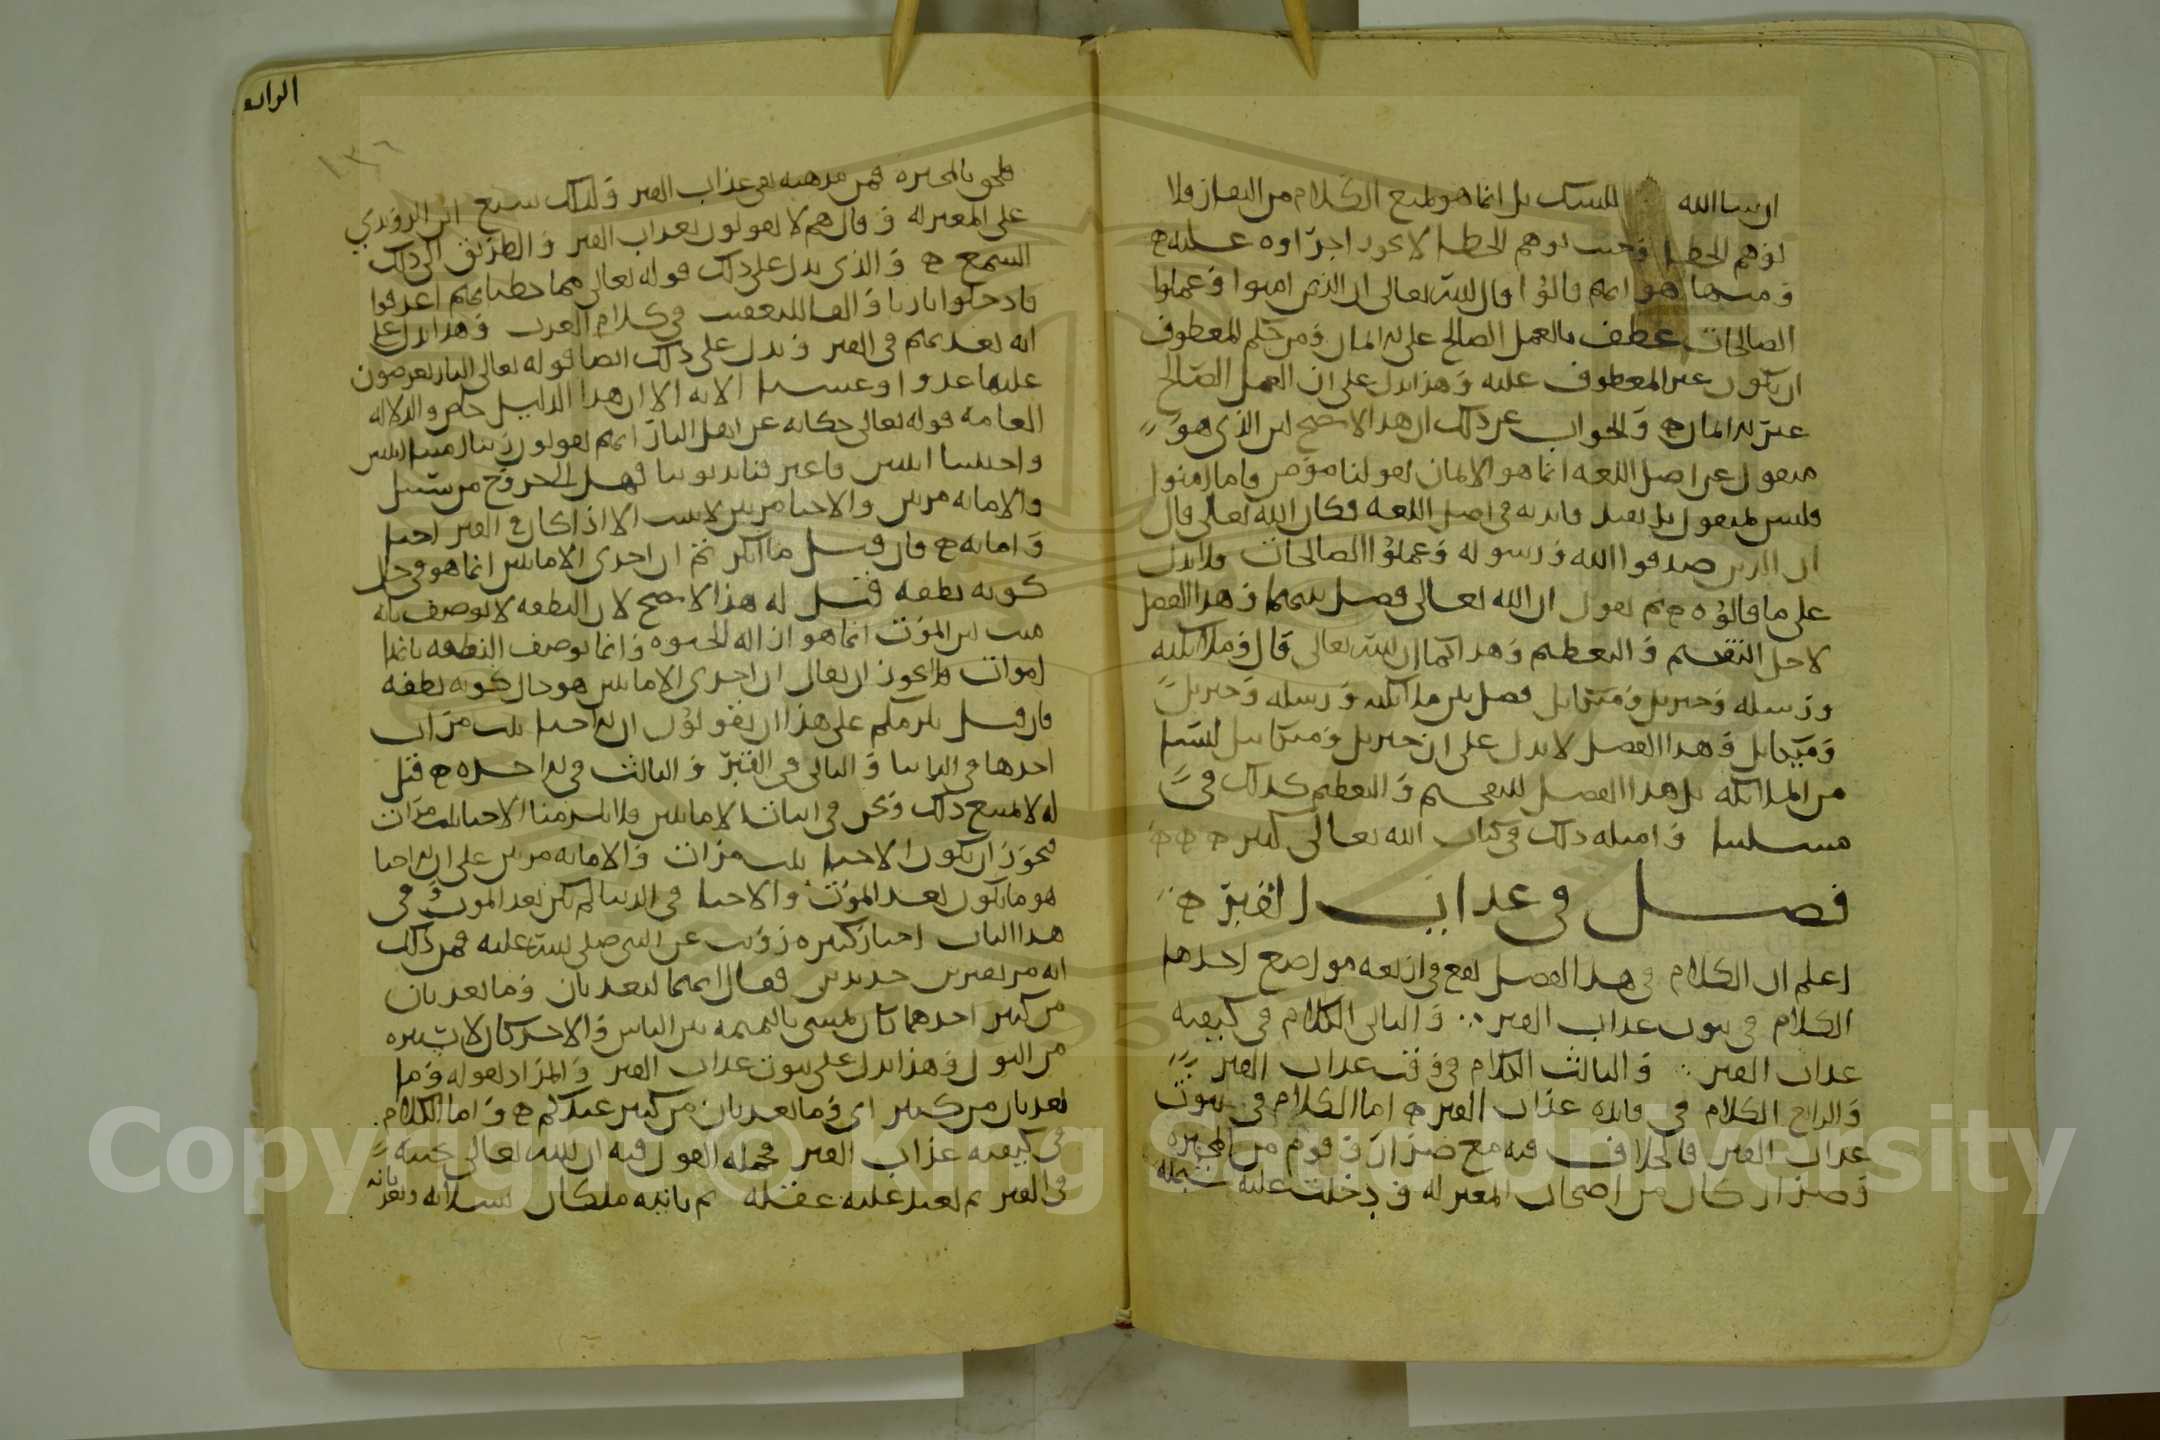 ان شاء الله للشك بل انما هو لمنع الكلام من النفاذ فلا
يوهم الخطا وحيث يوهم الخطا لا يجوز اجراؤه عليه
ومنها هو انهم قالوا قال الله تعالى ان الذين امنوا وعملوا
الصالحات عطف بالعمل الصالح على الايمان ومن حكم المعطوف
ان يكون غير المعطوف عليه وهذا يدل على ان العمل الصالح
غير الايمان والجواب عن ذلك ان هذا لا يصح لان الذي هو
منقول عن اصل اللغه انما هو الايمان لقولنا مؤمن واما امنوا
فليس بمنقول بل يفيد فايدته في اصل اللغه فكان الله تعالى قال
ان الذين صدقوا الله ورسوله وعملوا الصالحات فلا يدل
على ما قالوه ثم نقول ان الله تعالى فصل بينهما وهذا الفصل
لاجل التفخيم والتعظيم وهذا كما ان الله تعالى قال وملائكته
ورسله وجبريل وميكايل فصل بين ملائكته ورسله وجبريل
وميكايل وهذا الفصل لا يدل على ان جبريل وميكايل ليسا
من الملائكه بل هذا الفصل للتفخيم والتعظيم كذلك في
مسلتنا وامثله ذلك في كتاب الله تعالى كثير
فصل في عذاب القبر
اعلم ان الكلام في هذا الفصل يقع في اربعه مواضع احدها
الكلام في ثبوت عذاب القبر والثاني الكلام في كيفيه
عذاب القبر والثالث الكلام في وقت عذاب القبر
والرابع الكلام في فايده عذاب القبر اما الكلام في ثبوت
عذاب القبر فالخلاف فيه مع ضرار وقوم من المجبره
وضرار كان من اصحاب المعتزله ودخلت عليه شبهه
الرابع
١٣٦
فلحق بالمجبره فمن مذهبه نفي عذاب القبر ولذلك شنع ابن الروندي
على المعتزله وقال هم لا يقولون بعذاب القبر والطريق الى ذلك
السمع والذي يدل على ذلك قوله تعالى مما خطياتهم اغرقوا
فادخلوا نارا والفا للتعقيب في كلام العرب وهذا يدل على
انه يعذبهم في القبر ويدل على ذلك ايضا قوله تعالى النار يعرضون
عليها غدوا وعشيا الايه الا ان هذا الدليل خاص والدلاله
العامه قوله تعالى حكايه عن اهل النار انهم يقولون ربنا امتنا اثنتين
واحييتنا اثنتين فاعترفنا بذنوبنا فهل الى خروج من سبيل
والاماته مرتين والاحيا مرتين لا يثبت الا اذا كان في القبر احيا
واماته فان قيل ما انكرتم ان احدى الاماتتين انما هو في حال
كونه نطفه قيل له هذا لا يصح لان النطفه لا توصف بانه
ميت لان الموت انما هو ازاله الحيوه وانما توصف النطفه بانها
اموات ولا يجوز ان يقال ان احدى الاماتتين هو حال كونه نطفه
فان قيل يلزمكم على هذا ان تقولوا ان الاحيا ثلث مرات
احدها في الدنيا والثاني في القبر والثالث في الاخره قيل
له لا يمتنع ذلك ونحن في اثبات الاماتتين فلا يلزمنا الاحيا ثلث مرات
فيجوز ان يكون الاحيا ثلث مرات والاماته مرتين على ان الاحيا
هو ما يكون بعد الموت والاحيا في الدنيا لم يكن بعد الموت وفي
هذا الباب اخبار كثيره رويت عن النبي صلى الله عليه فمن ذلك
انه مر بقبرين جديدين فقال انهما ليعذبان وما يعذبان
من كبير احدهما كان يمشي بالنميمه بين الناس والاخر كان لا يستبره
من البول وهذا يدل على ثبوت عذاب القبر والمراد بقوله وما
يعذبان من كبير اي وما يعذبان من كبير عندكم واما الكلام
في كيفيه عذاب القبر فجمله القول فيه ان الله تعالى يحييه
في القبر ثم يعيد عليه عقله ثم ياتيه ملكان يسلانه